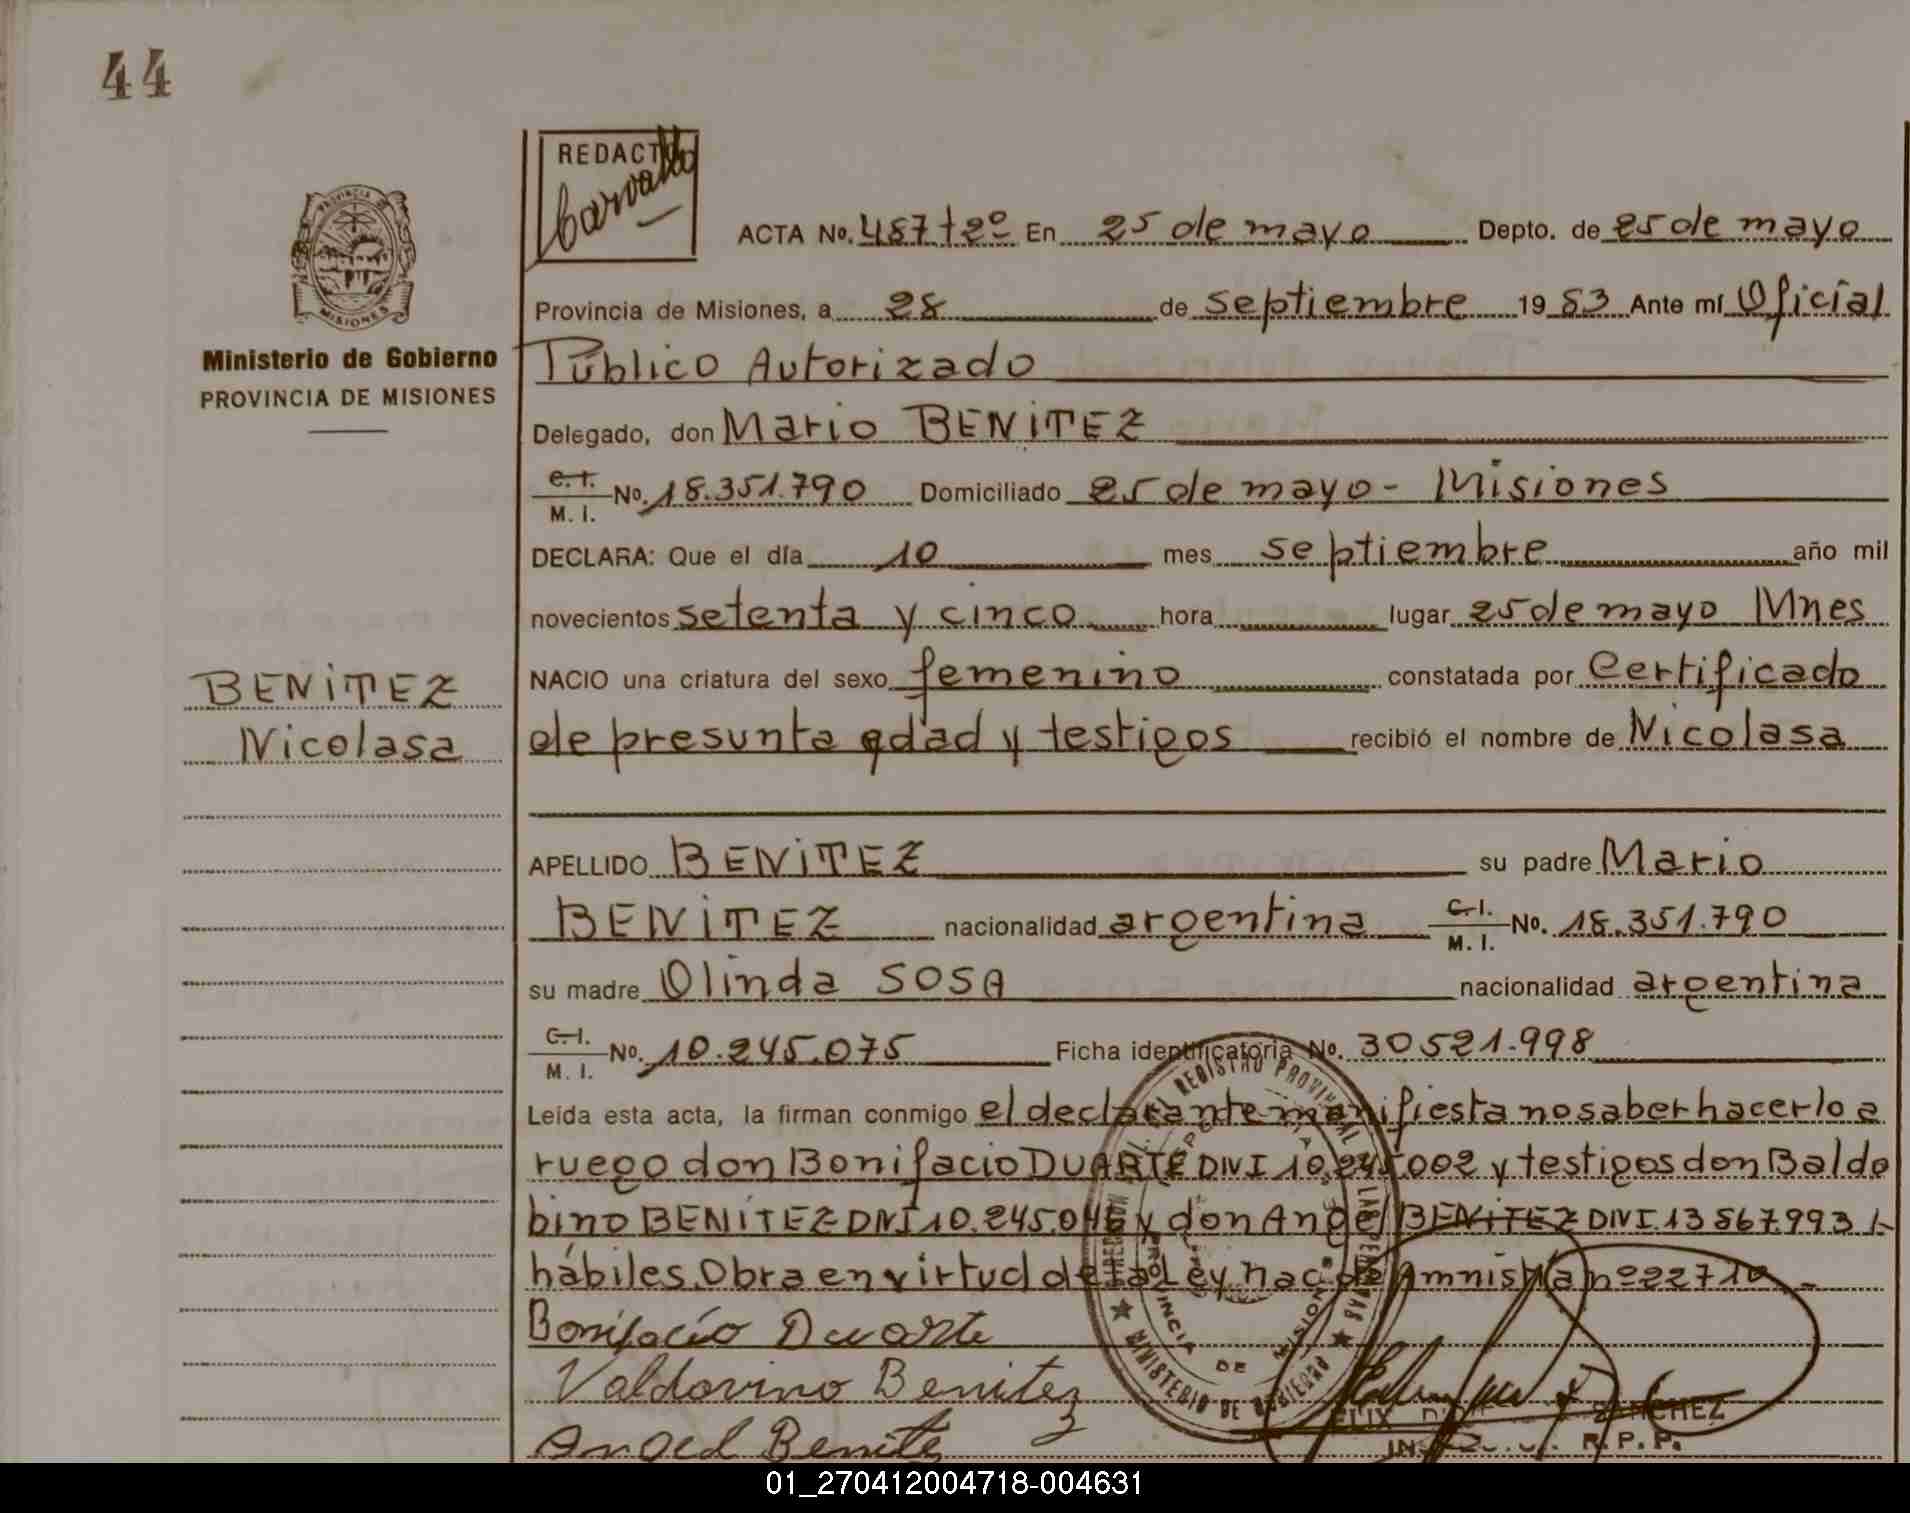 44
REDACTO
Carvallo
PROVINCIA DE
MISIONES
Ministerio de Gobierno
PROVINCIA DE MISIONES
ACTA No. 487 t 2º En 25 de mayo Depto. de 25 de mayo
Provincia de Misiones, a 28 de septiembre 19 83 Ante mí Oficial
Público Autorizado
Delegado, don Mario BENITEZ
C. I. / M. I. No. 18.351.790 Domiciliado 25 de mayo - Misiones
DECLARA: Que el día 10 mes septiembre año mil
novecientos setenta y cinco hora lugar 25 de mayo Mnes
NACIO una criatura del sexo femenino constatada por Certificado
de presunta edad y testigos recibió el nombre de Nicolasa
BENITEZ
Nicolasa
APELLIDO BENITEZ su padre Mario
BENITEZ nacionalidad argentina C. I. / M. I. No. 18.351.790
su madre Olinda SOSA nacionalidad argentina
C. I. / M. I. No. 10.245.075 Ficha identificatoria No. 30521.998
Leída esta acta, la firman conmigo el declarante manifiesta no saber hacerlo a
ruego don Bonifacio DUARTE DNI 10.245.002 y testigos don Baldo
bino BENITEZ DNI 10.245.046 y don Angel BENITEZ DNI. 13867.993 h
hábiles. Obra en virtud de la Ley nac. de Amnistía nº 22710
Bonifacio Duarte
Valdovino Benitez
Angel Benitez
REGISTRO PROVINCIAL DE LAS PERSONAS
MINISTERIO DE GOBIERNO
PROVINCIA DE MISIONES
SANCHEZ
R. P. P.
01_270412004718-004631